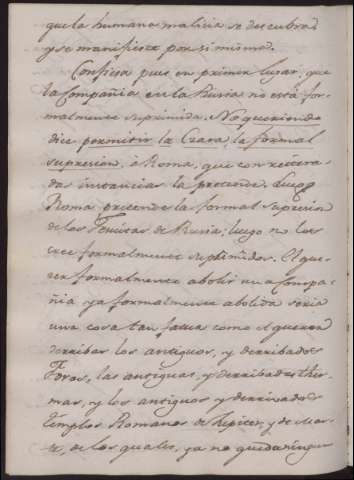 que la humana malicia se descubra,
y se manifieste por si misma.
Confiesa pues en primer lugar, que
la Compañia en la Rusia no está for-
malmente suprimida. No queriendo
dice permitir la Czara la formal
supresion, à Roma, que con reitera-
das instancias la pretende. Luego
Roma pretende la formal supresion
de los Jesuitas de Rusia, luego no los
cree formalmente suprimidos. El que-
rer formalmente abolir una Compa-
ñia ya formalmente abolida seria
una cosa tan fatua como el querer
derribar los antiguos, y derribados
Foros, las antiguas, y derribadas ther-
mas, y los antiguos y derrivados
templos Romanos de Jupiter, y de Mar-
te, de los quales, ya no queda ningun